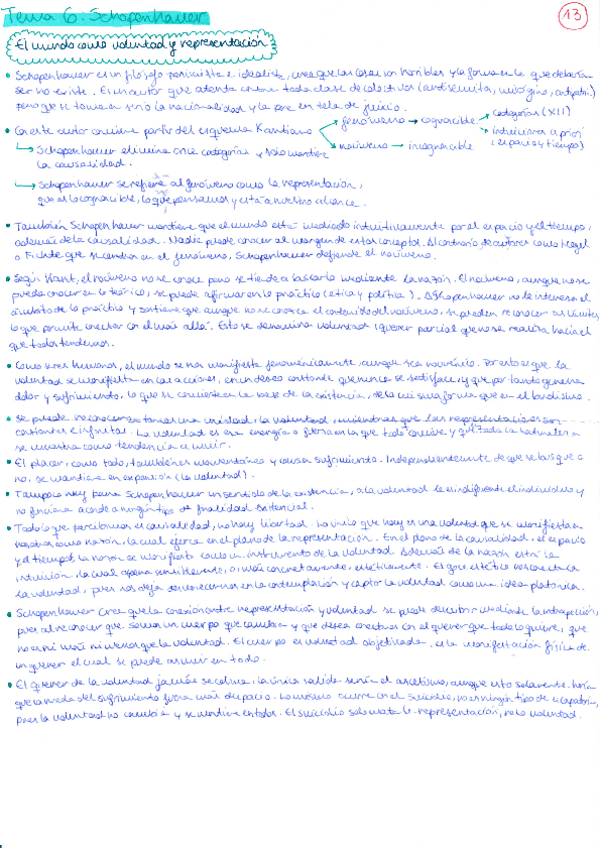 Tema 6: Schopenhauer
13
El mundo como voluntad y representación
• Schopenhauer es un filósofo pesimista e idealista, cree que las cosas son horribles y la forma en la que deberían
ser no existe. Es un autor que atenta contra toda clase de colectivos (antisemita, misógino, antipatri.)
pero que se toma en serio la nacionalidad y la pone en tela de juicio.
• Con este autor conviene partir del esquema Kantiano
fenómeno → cognoscible
categorías (XII)
intuiciones a priori
(espacio y tiempo)
noúmeno → incognoscible
↳ Schopenhauer elimina once categorías y solo mantiene
la causalidad.
↳ Schopenhauer se refiere al fenómeno como la representación,
que es lo cognoscible, lo que pensamos y está a nuestro alcance.
• También Schopenhauer mantiene que el mundo está mediado intuitivamente por el espacio y el tiempo,
además de la causalidad. Nadie puede conocer al margen de estos conceptos. Al contrario de autores como Hegel
o Fichte que se centran en el fenómeno, Schopenhauer defiende el noúmeno.
• Según Kant, el noúmeno no se conoce pero se tiende a buscarlo mediante la razón. El noúmeno, aunque no se
pueda conocer en lo teórico, se puede afirmar en lo práctico (ética y política). A Schopenhauer no le interesa el
ámbito de lo práctico y sostiene que aunque no se conozca el contenido del noúmeno, se pueden reconocer sus límites,
lo que permite conectar con el más allá. Esto se denomina voluntad: querer parcial que no se realiza hacia el
que todos tendemos.
• Como seres humanos, el mundo se nos manifiesta fenoménicamente, aunque sea noúmenico. Por esto es que la
voluntad se manifiesta en las acciones, en un deseo constante que nunca se satisface, y que por tanto genera
dolor y sufrimiento, lo que se convierte en la base de la existencia, de la misma forma que en el budismo.
• Se puede reconocer la voluntad, mientras que las representaciones son
constantes e infinitas. La voluntad es esa energía o fuerza en la que todo convive y que toda la naturaleza
se muestra como tendencia a unir.
• El placer, como todo, también es momentáneo y causa sufrimiento. Independientemente de que se busque o
no, se mantiene en expansión (la voluntad).
• Tampoco hay para Schopenhauer un sentido de la existencia, a la voluntad le es indiferente el individuo y
no funciona acorde a ningún tipo de finalidad existencial.
• Todo lo que percibimos es causalidad, no hay libertad. Lo único que hay es una voluntad que se manifiesta en
nosotros como razón, la cual ejerce en el plano de la representación. En el plano de la causalidad, el espacio
y el tiempo, la razón se manifiesta como un instrumento de la voluntad. Además de la razón está la
intuición, la cual opera sensiblemente, o más concretamente, estéticamente. El goce estético nos conecta con
la voluntad, pues nos deja desconocernos en la contemplación y captar la voluntad como una idea platónica.
• Schopenhauer cree que la conexión entre representación y voluntad se puede descubrir mediante la introspección,
pues al reconocer que somos un cuerpo que cambia y que desea conectarnos con el querer que todo lo quiere, que
no es ni más ni menos que la voluntad. El cuerpo es voluntad objetivada, es la manifestación física de
un querer el cual se puede asumir en todo.
• El querer de la voluntad jamás se calma, la única salida sería el ascetismo, aunque esto solamente haría
que la rueda del sufrimiento fuera más despacio. Lo mismo ocurre con el suicidio, no es ningún tipo de escapatoria,
pues la voluntad no cambia y se mantiene en todos. El suicidio solo mata la representación, no la voluntad.